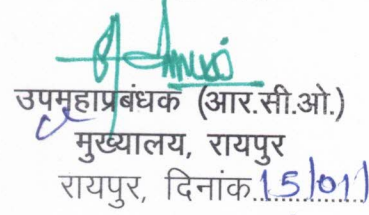 उपमहाप्रबंधक (आर.सी.ओ.)
मुख्यालय, रायपुर
रायपुर, दिनांक 15/01/